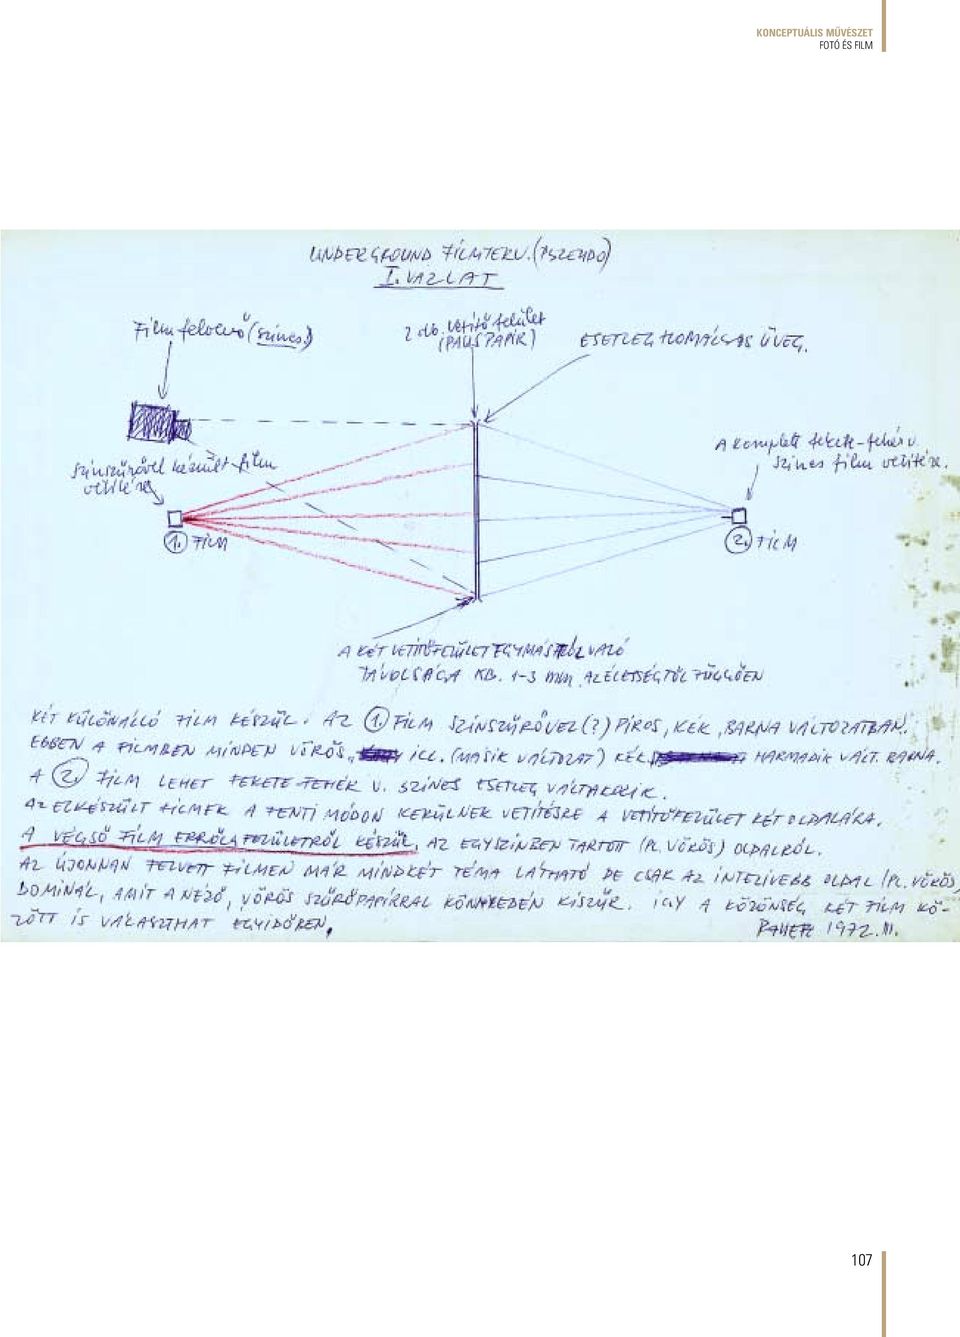 KONCEPTUÁLIS MŰVÉSZET
FOTÓ ÉS FILM
UNDERGROUND FILMTERV. (PSZEUDO)
I. VÁZLAT
Film felvevő (színes.)
2 db. vetítő felület
(PAUSPAPÍR)
ESETLEG HOMÁLYOS ÜVEG.
A komplett fekete-fehér v.
színes film vetítése.
Színszűrővel készült film
vetítése
1. FILM
2. FILM
A KÉT VETÍTŐFELÜLET EGYMÁSTÓL VALÓ
TÁVOLSÁGA KB. 1-3 mm. AZ ÉLETSÉGTŐL FÜGGŐEN
KÉT KÜLÖNÁLLÓ FILM KÉSZÜL. AZ 1. FILM SZÍNSZŰRŐVEL (?) PIROS, KÉK, BARNA VÁLTOZATBAN.
EBBEN A FILMBEN MINDEN VÖRÖS, ILL. (MÁSIK VÁLTOZAT) KÉK, HARMADIK VÁLT. BARNA.
A 2. FILM LEHET FEKETE-FEHÉR V. SZÍNES ESETLEG VÁLTAKOZIK.
AZ ELKÉSZÜLT FILMEK A FENTI MÓDON KERÜLNEK VETÍTÉSRE A VETÍTŐFELÜLET KÉT OLDALÁRA.
A VÉGSŐ FILM ERRŐL A FELÜLETRŐL KÉSZÜL, AZ EGYSZÍNBEN TARTOTT (PL. VÖRÖS) OLDALRÓL.
AZ ÚJONNAN FELVETT FILMEN MÁR MINDKÉT TÉMA LÁTHATÓ DE CSAK AZ INTEZÍVEBB OLDAL (PL. VÖRÖS)
DOMINÁL, AMIT A NÉZŐ, VÖRÖS SZŰRŐPAPÍRRAL KÖNNYEDÉN KISZŰR. ÍGY A KÖZÖNSÉG KÉT FILM KÖ-
ZÖTT IS VÁLASZTHAT EGYIDŐBEN.
PAUER 1972. III.
107